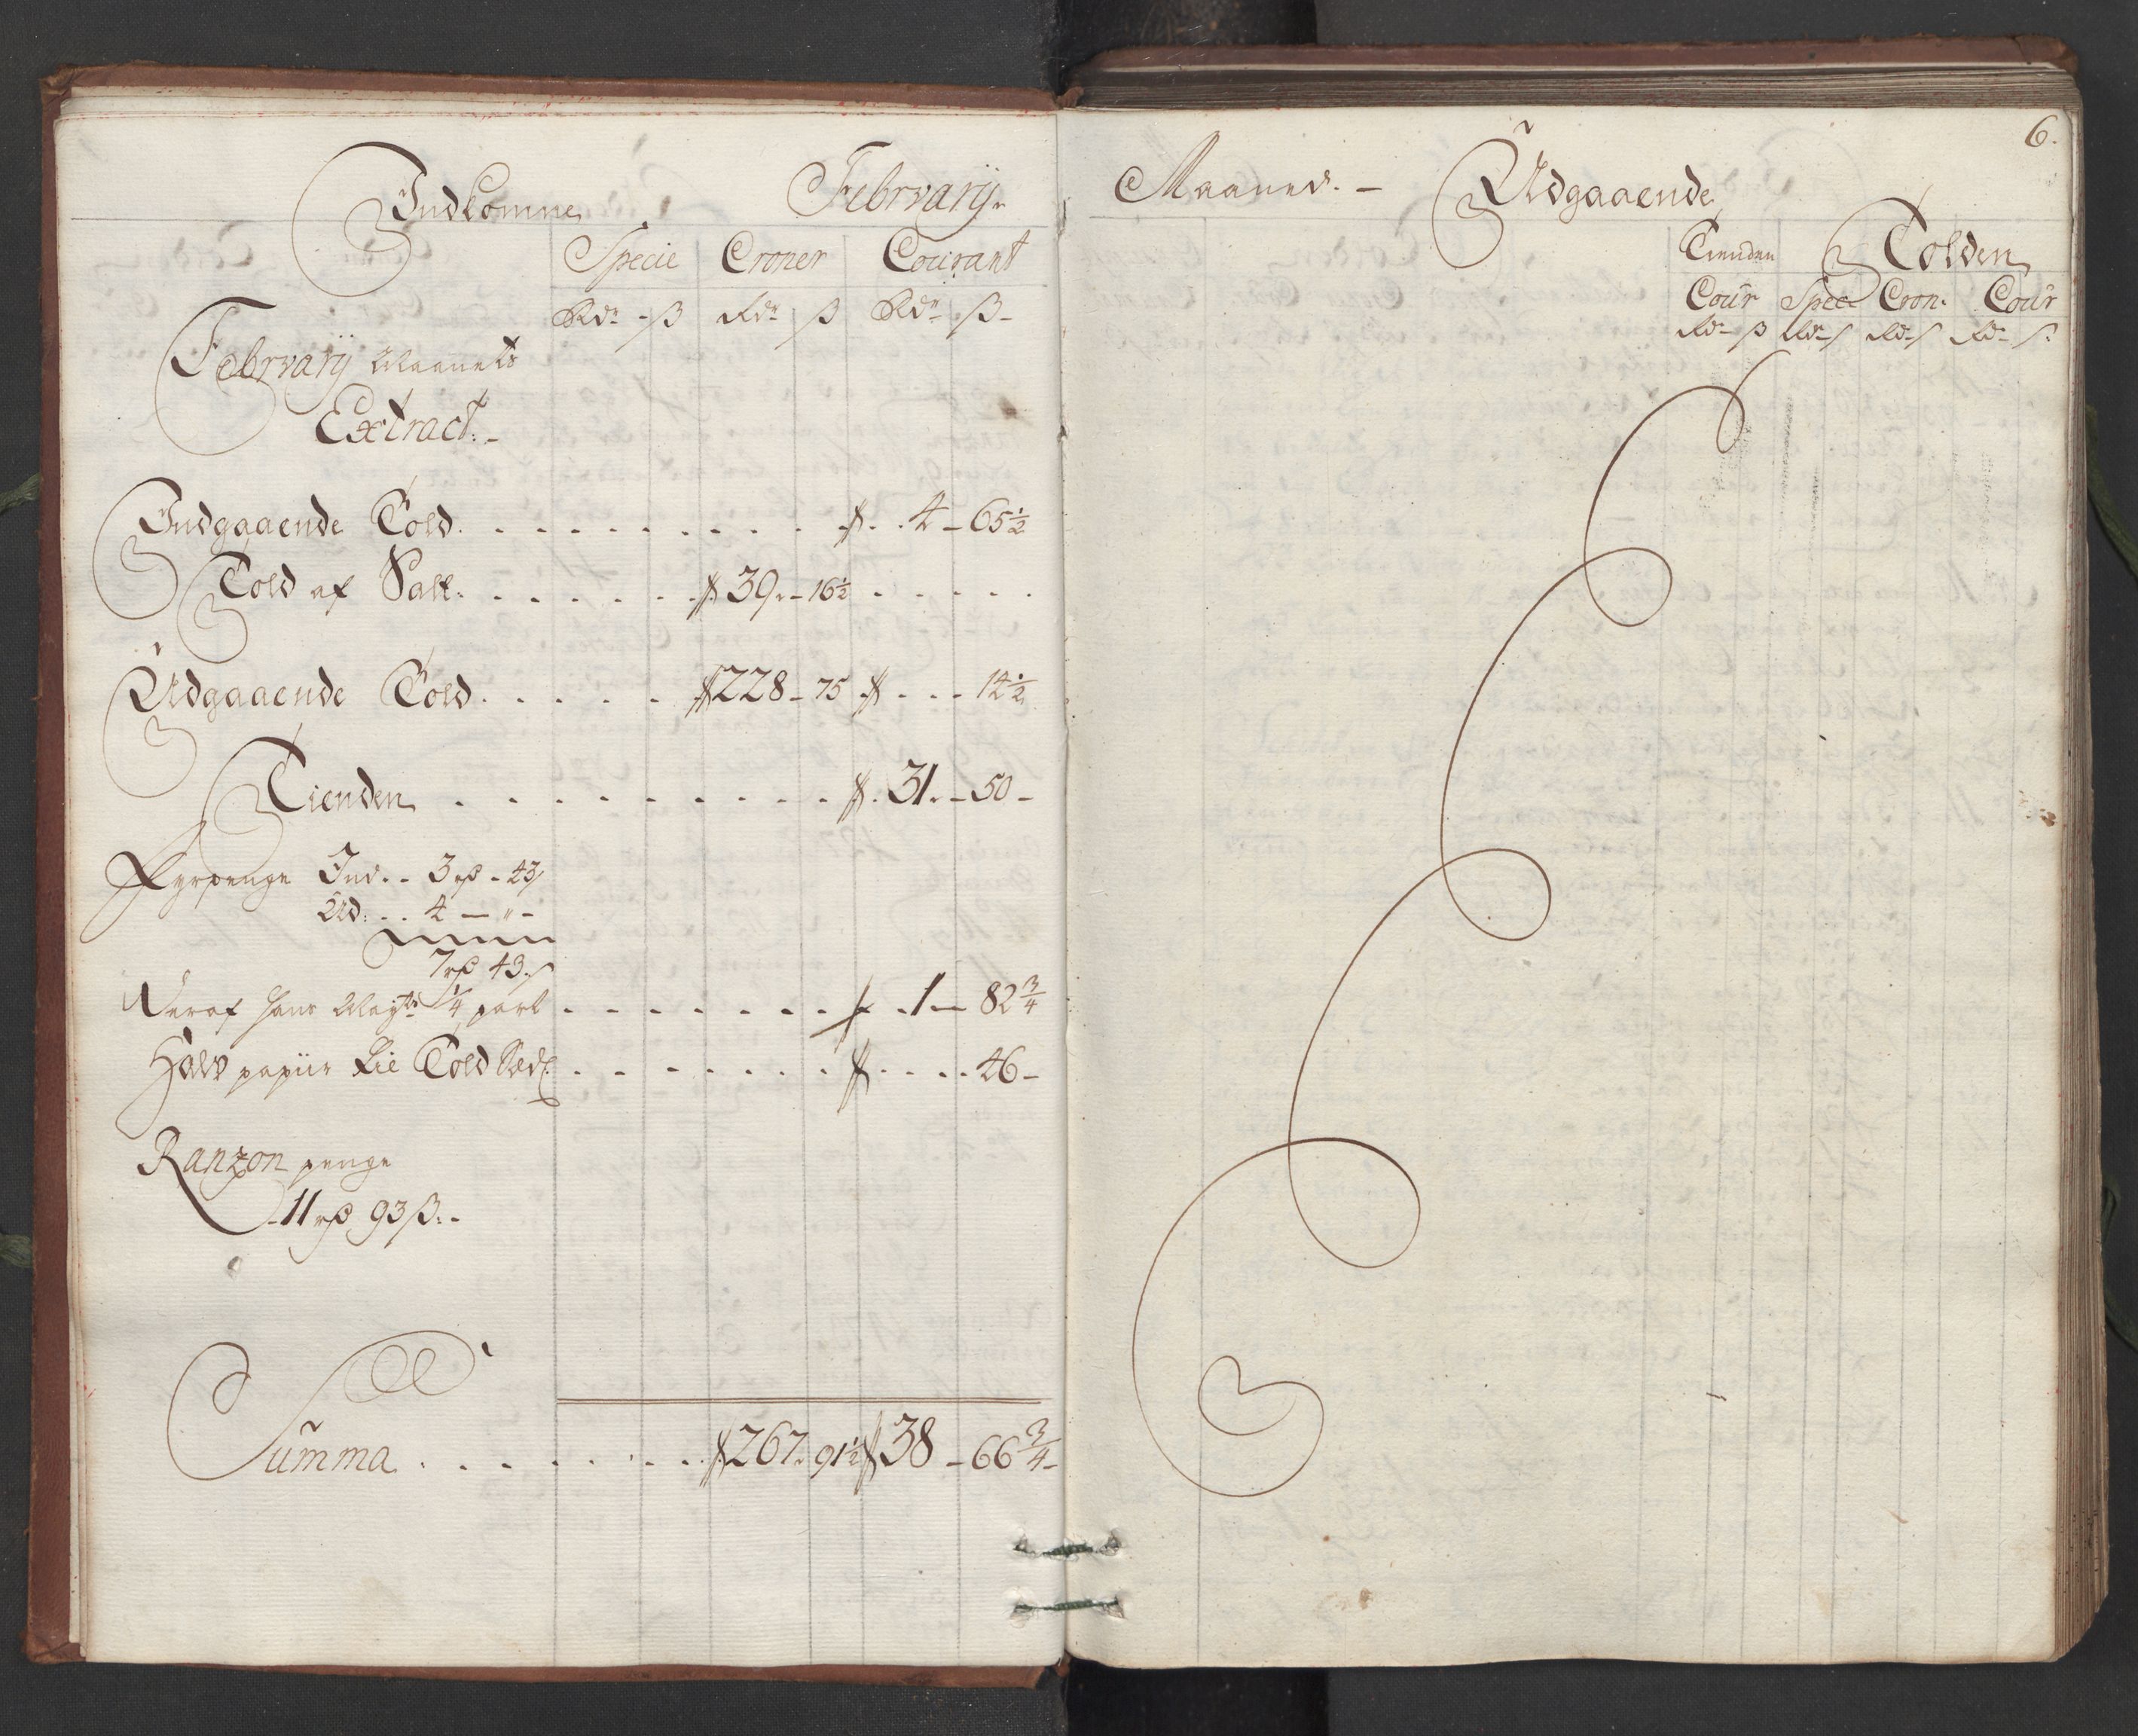 Indkomne Febrvarij
Specie Croner Courant
Rdr ß Rdr ß Rdr ß
Febrvarij Maanets
Extract.
Indgaaende Told. 4 - 65½
Told af Salt. 39 - 16½
Udgaaende Told. 228 - 75 14½
Tienden 31 - 50 -
Fyrpenge Ind. - 3 rd - 43 ß
Ud: 4 — " -
7 rd 43 ß
Deraf Hans Mayts ¼ part 1 - 82¾
Halv papiir til Told Sedl. 46 -
Ranzon penge
11 rd 93 ß.
Summa 267 - 91½ 38 - 66¾
6.
Maaned. - Udgaaende
Tienden Tolden
Cour Spec Cron. Cour
Rdr ß Rdr ß Rdr ß Rdr ß